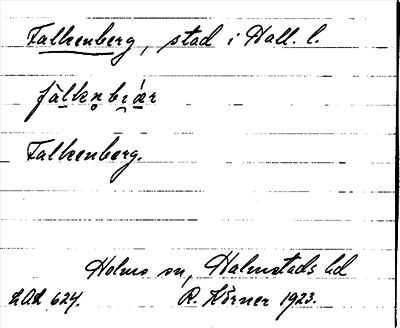 Falkenberg, stad i Hall. l.
fàlkn̥bɪ̯ǽr
Falkenberg.
Holms sn, Halmstads hd
LAL 624. R. Körner 1923.